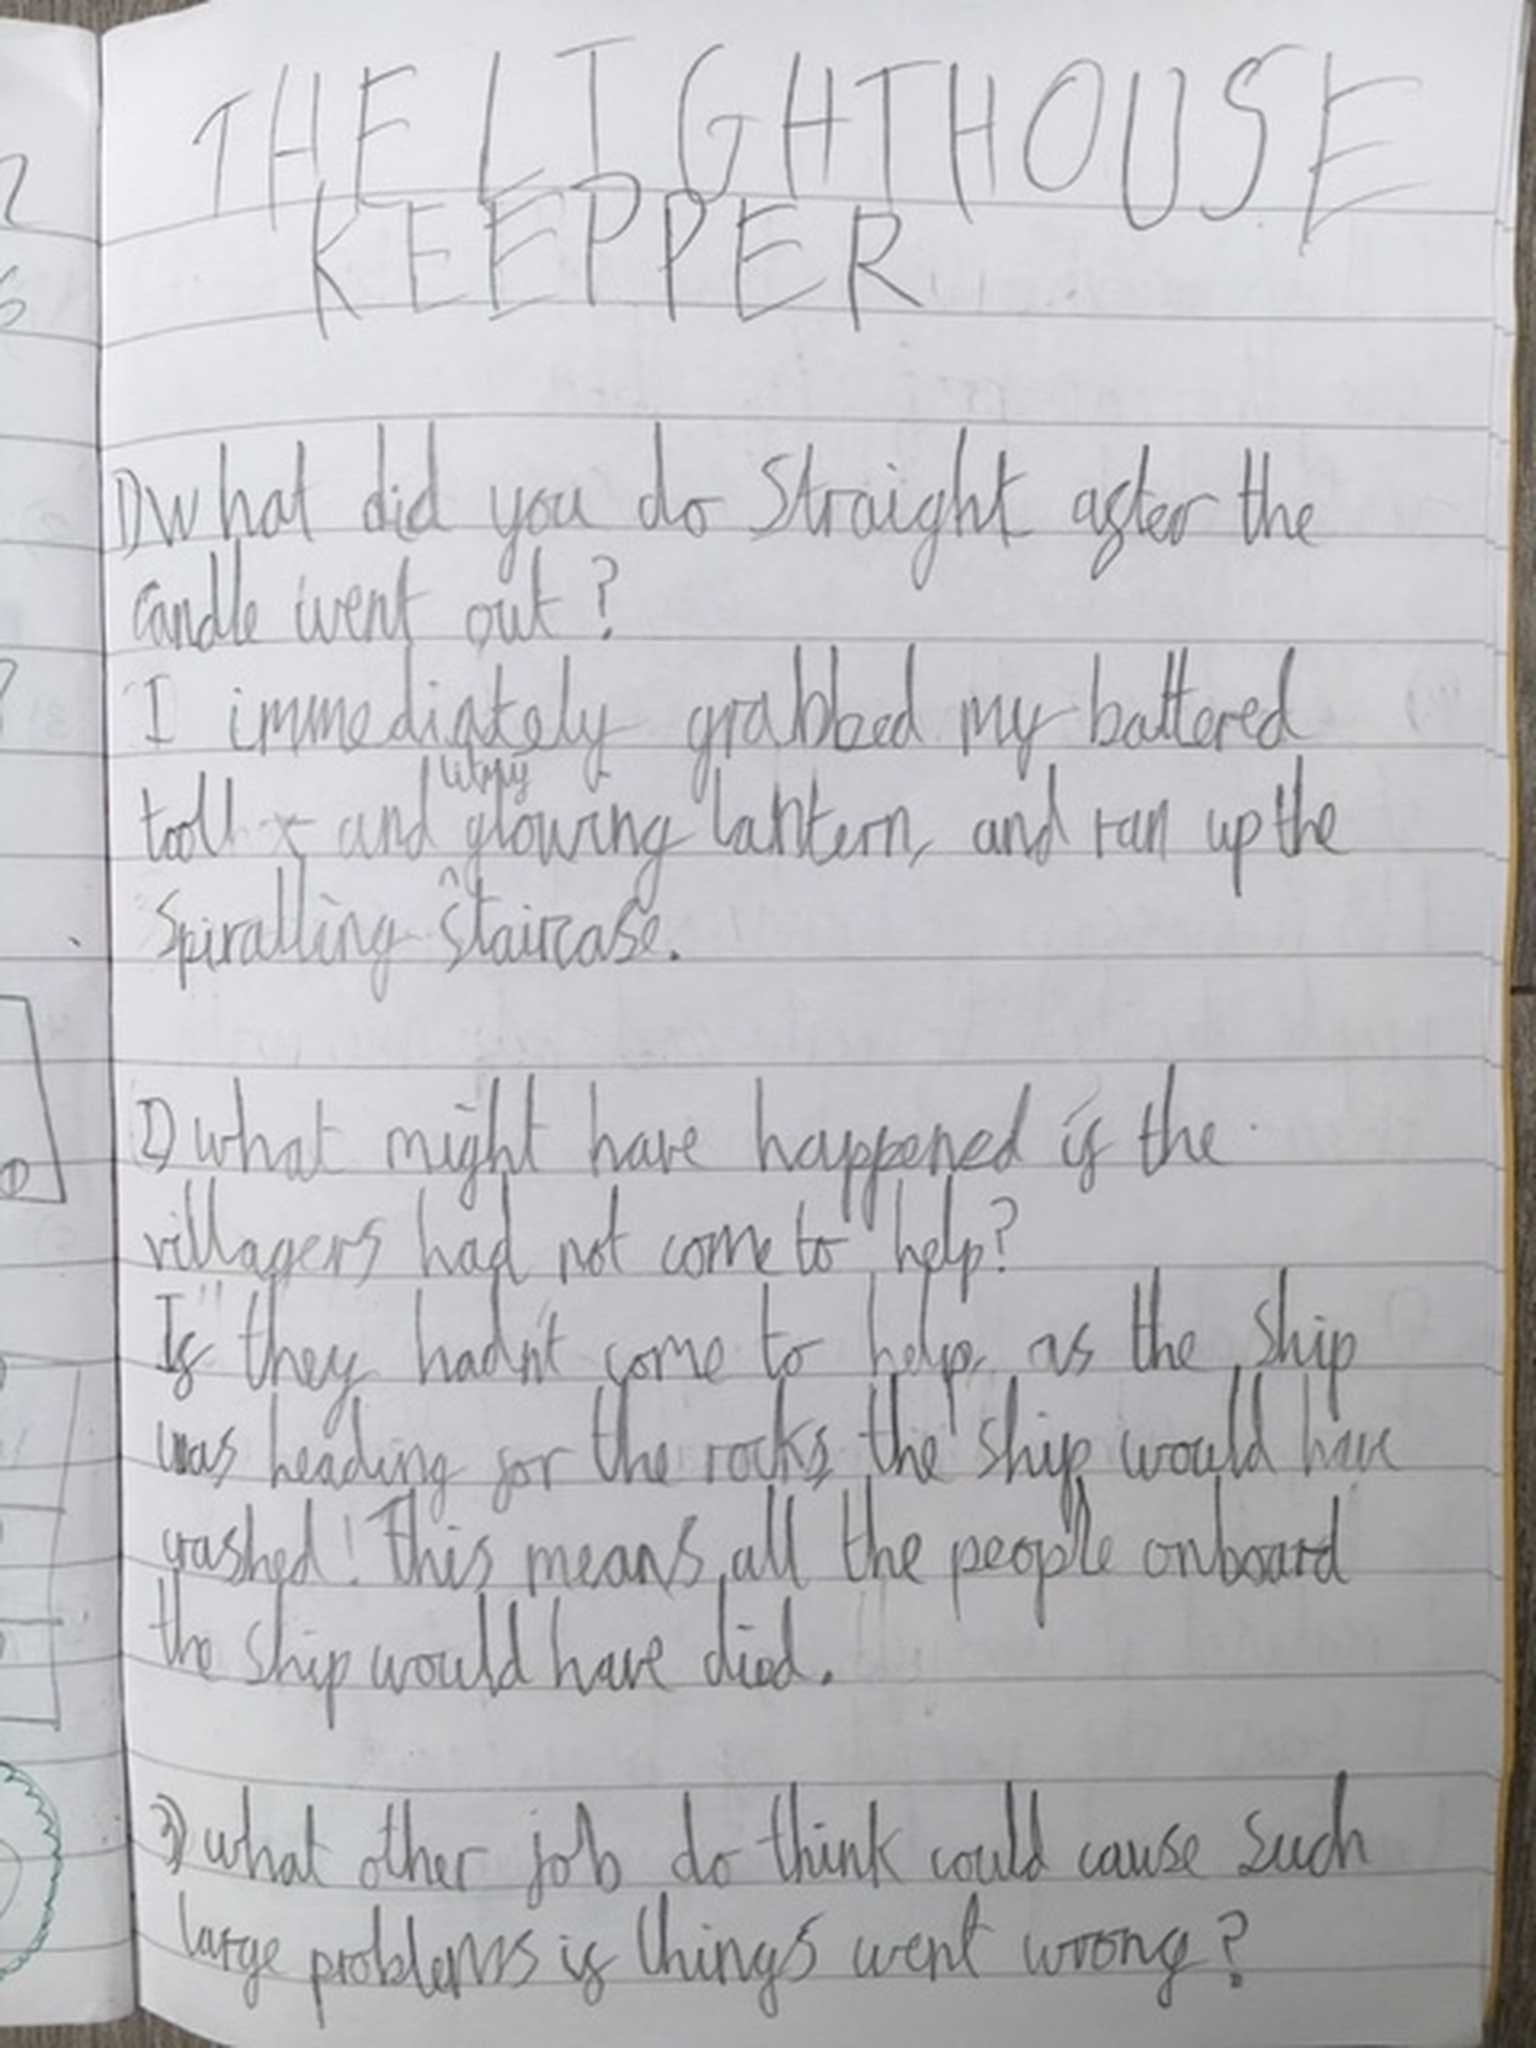 THE LIGHTHOUSE
KEEPPER
1) What did you do Straight after the
candle went out?
I immediately grabbed my battered
and glowing lantern, and ran up the
Spiralling staircase.
2) what might have happened if the
villagers had not come to help?
If they hadn't come to help, as the ship
was heading for the rocks, the ship would have
crashed! This means all the people onboard
the ship would have died.
3) what other job do think could cause such
large problems if things went wrong?